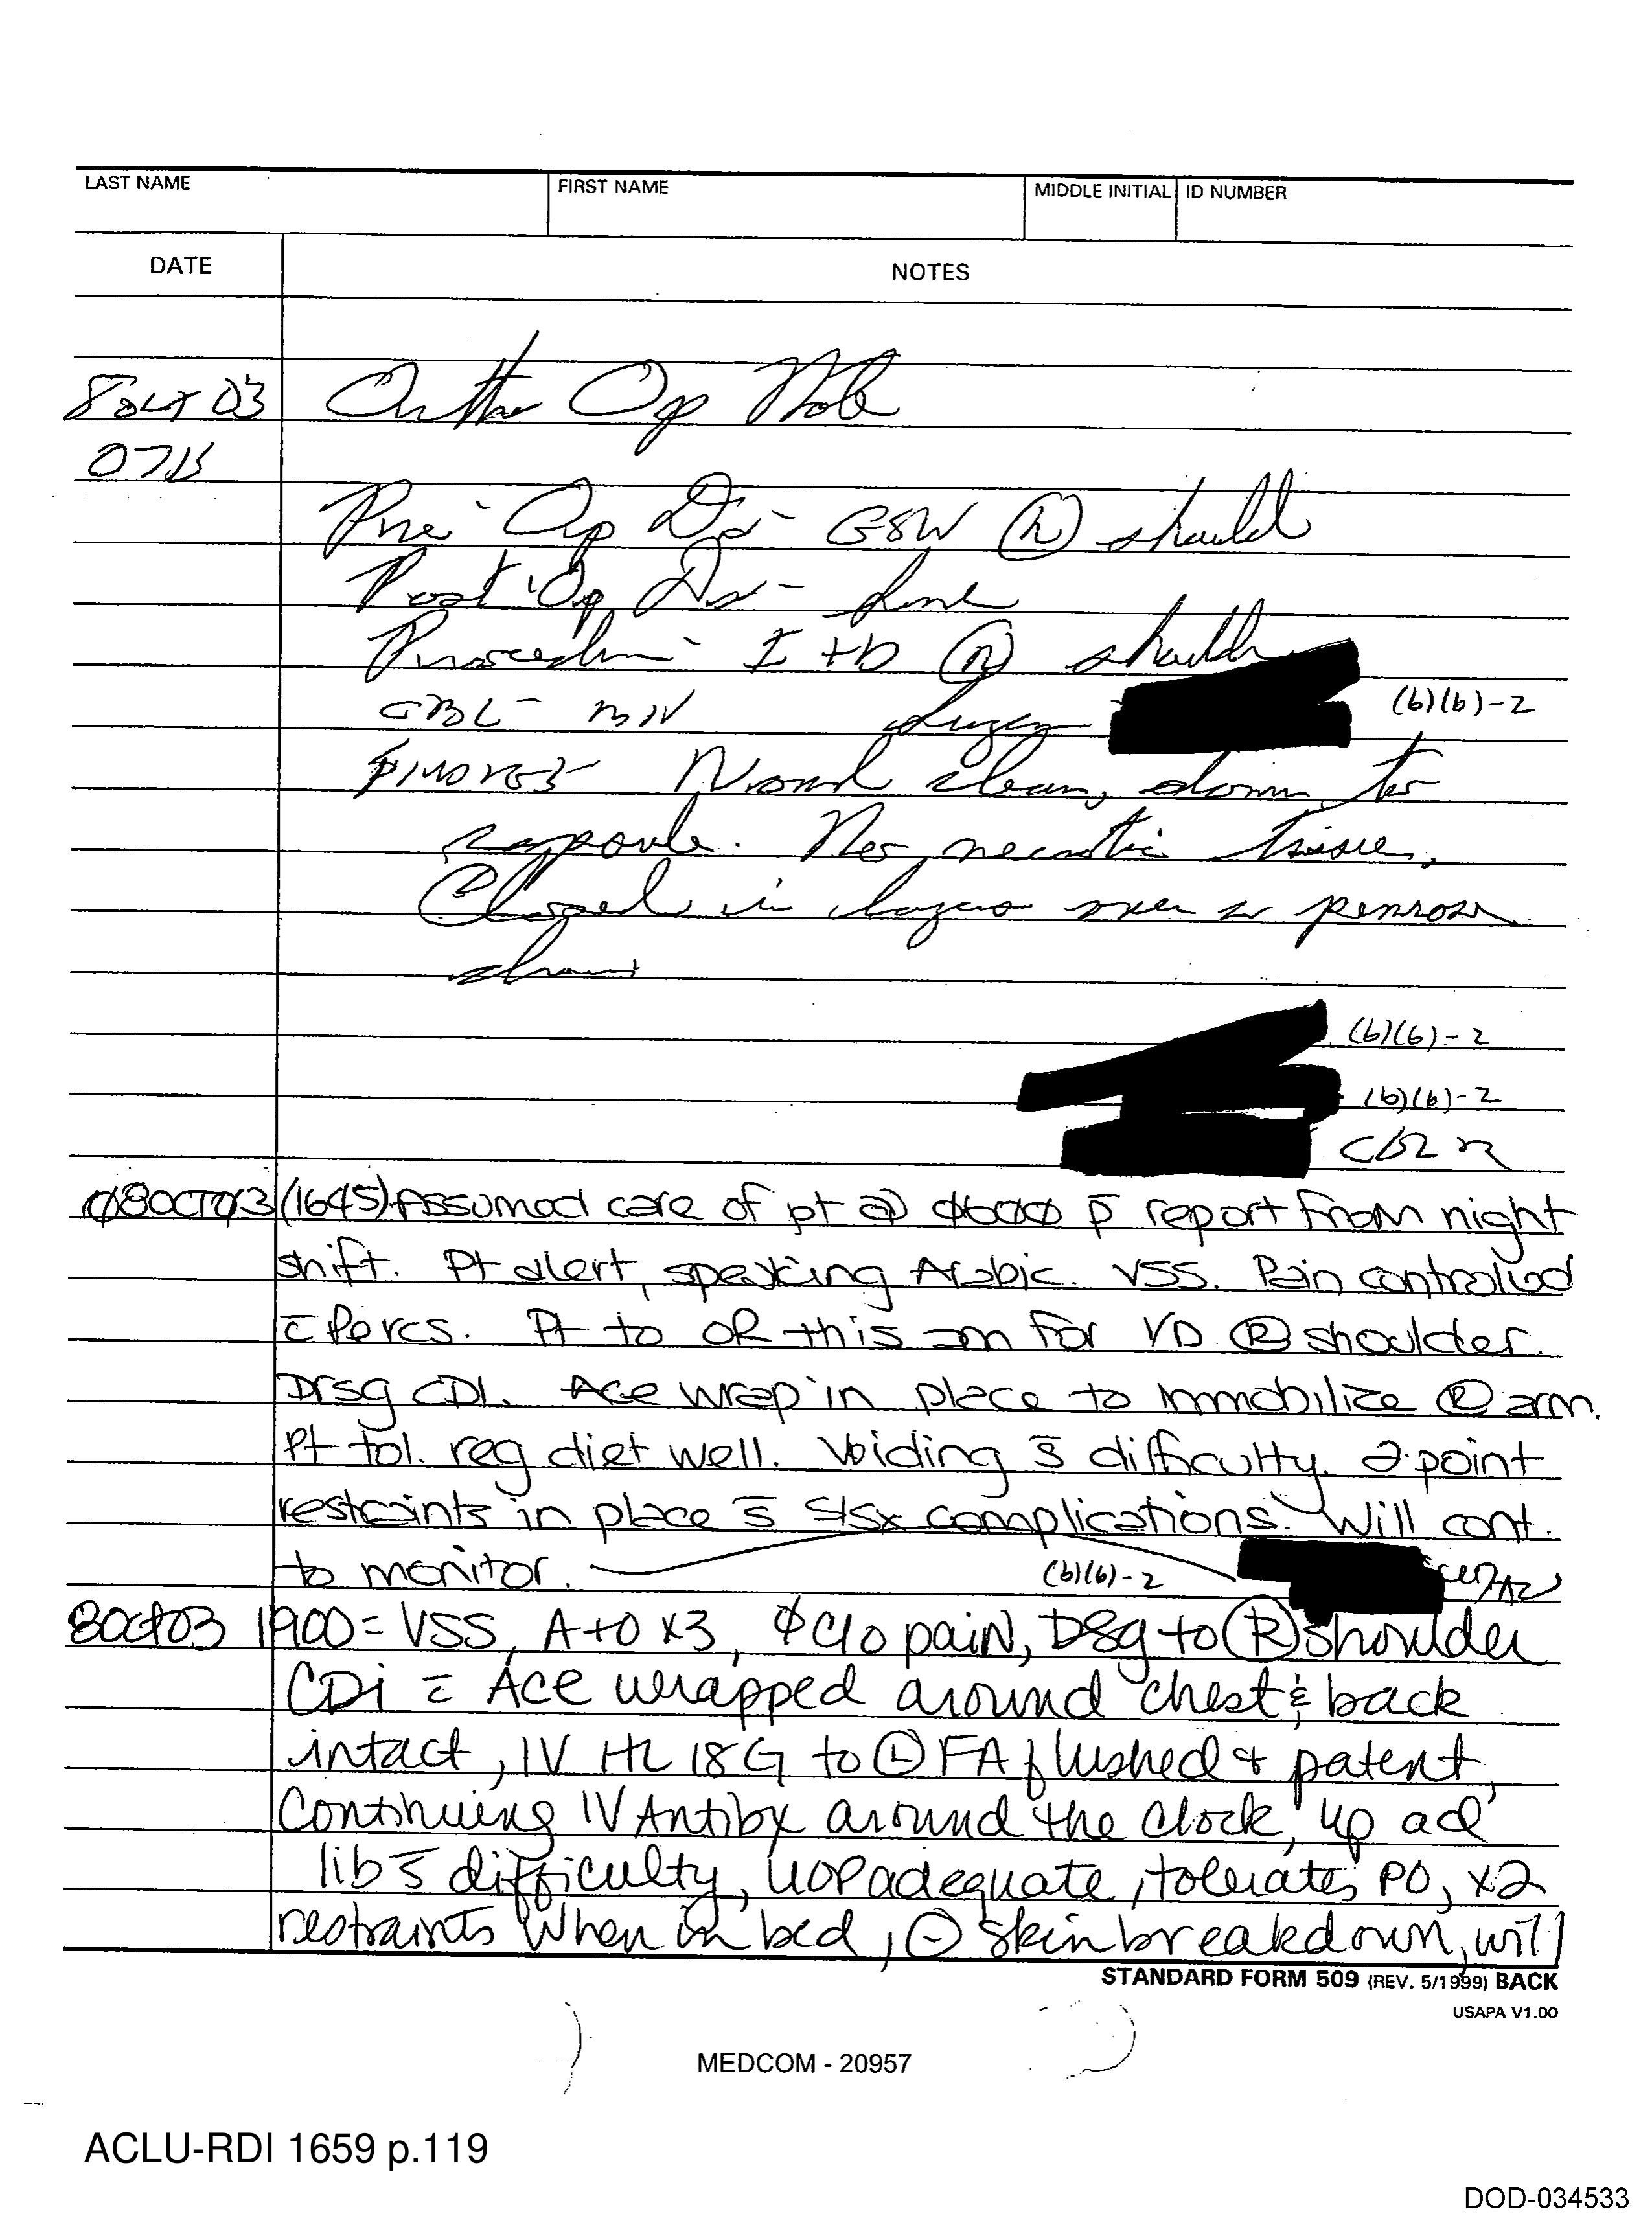 LAST NAME FIRST NAME MIDDLE INITIAL ID NUMBER
DATE NOTES
8 Oct 03 Ortho Op Note
0715
Pre-Op Dx- GSW (R) should
Post Op Dx- Same
Procedure- I+D (R) shoulder
EBL- min Surgeon (b)(6)-2
FINDINGS- Wound clean, down to
capsule. No necrotic tissue.
Closed in layers over a penrose
drain
(b)(6)-2
(b)(6)-2
08OCT03 (1645) Assumed care of pt @ 0600 p̄ report from night
shift. Pt alert, speaking Arabic. VSS. Pain controlled
c̄ Percs. Pt to OR this am for I/D (R) shoulder.
Drsg CDI. Ace wrap in place to immobilize (R) arm.
Pt tol. reg diet well. Voiding s̄ difficulty. 2-point
restraints in place s̄ s/sx complications. Will cont.
to monitor. (b)(6)-2
8Oct03 1900= VSS, A+O x3, Ø c/o pain, Dsg to (R) shoulder
CDi c̄ Ace wrapped around chest & back
intact, IV HL 18G to (L) FA flushed & patent,
Continuing IV Antibx around the clock, up ad
lib s̄ difficulty, UOP adequate, tolerates PO, x2
restraints when in bed, (-) skin breakdown, will
STANDARD FORM 509 (REV. 5/1999) BACK
USAPA V1.00
MEDCOM - 20957
ACLU-RDI 1659 p.119
DOD-034533